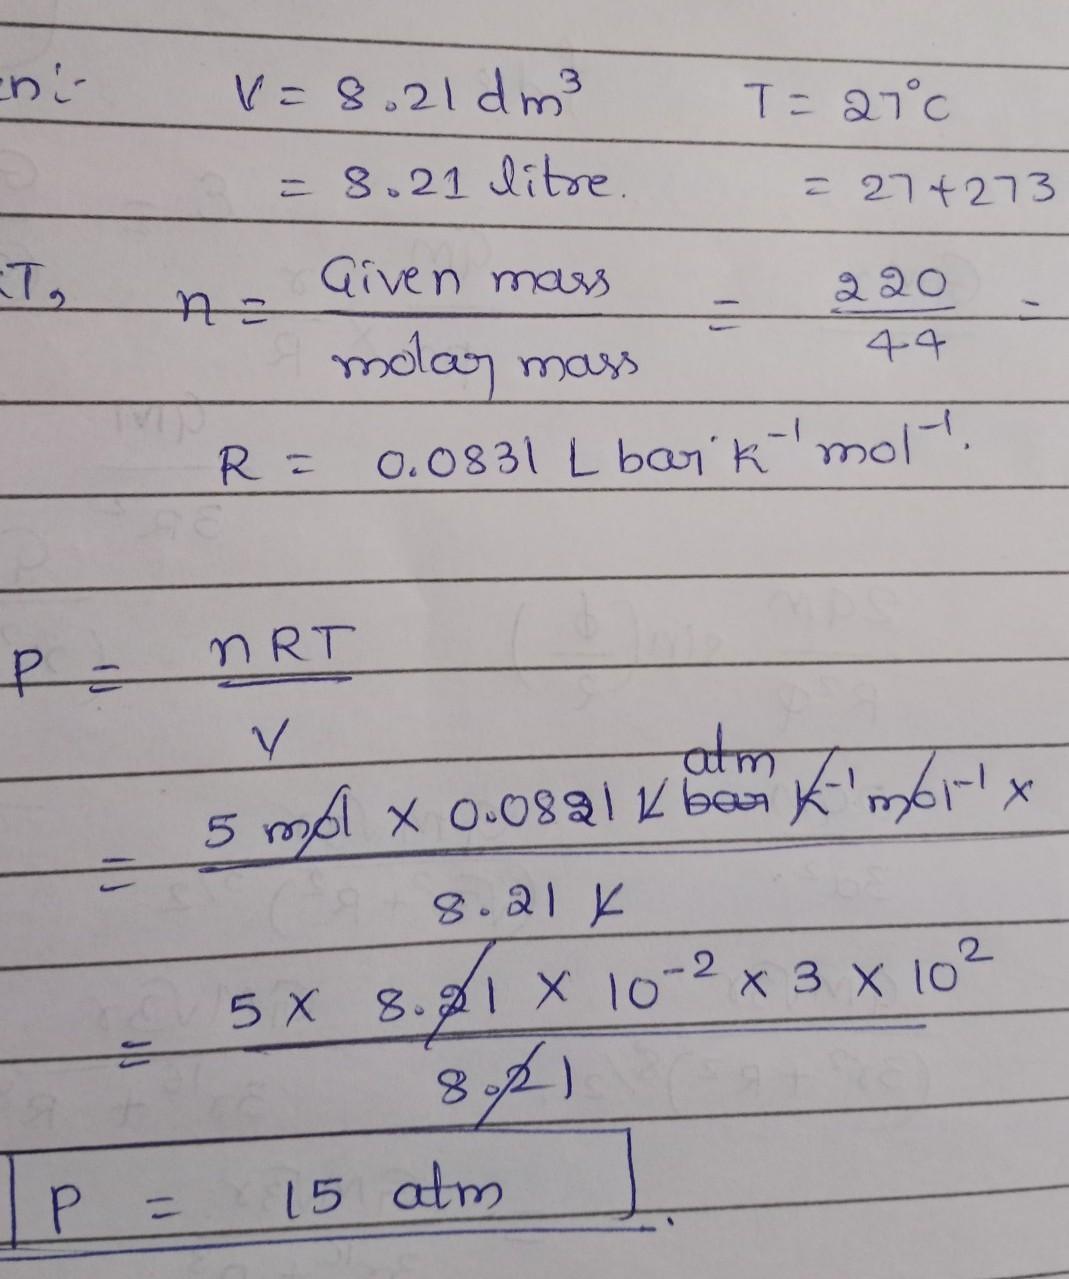 en:- V = 8.21 dm³ T = 27°C
= 8.21 litre. = 27+273
T, n = Given mass / molar mass = 220 / 44 =
R = 0.0831 L bar K⁻¹ mol⁻¹.
P = nRT / V
atm
= 5 mol × 0.0821 L bar K⁻¹ mol⁻¹ ×
8.21 L
= 5 × 8.21 × 10⁻² × 3 × 10²
8.21
P = 15 atm.